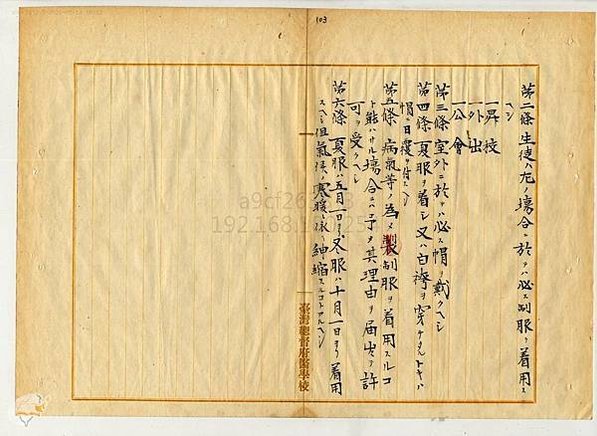 103
第二條 生徒ハ左ノ塲合ニ於テハ必ス制服ヲ着用ス
ヘシ
一昇校
一外出
一公會
第三條 室外ニ於テハ必ス帽ヲ戴クヘシ
第四條 夏服ヲ着シ又ハ白袴ヲ穿チタルトキハ
帽ニ日覆ヲ付スヘシ
第五條 病氣等ノ爲メ製制服ヲ着用スルコ
ト能ハサル塲合ニハ予メ其理由ヲ届出テ許
可ヲ受クヘシ
第六條 夏服ハ五月一日ヨリ冬服ハ十月一日ヨリ着用
スヘシ但氣候ノ寒暖ニ依リ伸縮スルコトアルヘシ
臺灣總督府醫學校